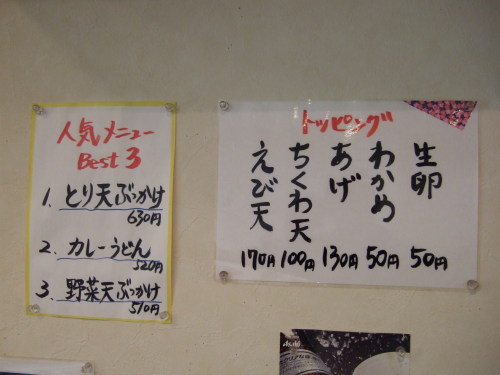 人気メニュー
Best 3
1. とり天ぶっかけ
630円
2. カレーうどん
520円
3. 野菜天ぶっかけ
510円
トッピング
生卵 50円
わかめ 50円
あげ 130円
ちくわ天 100円
えび天 170円
Asahi